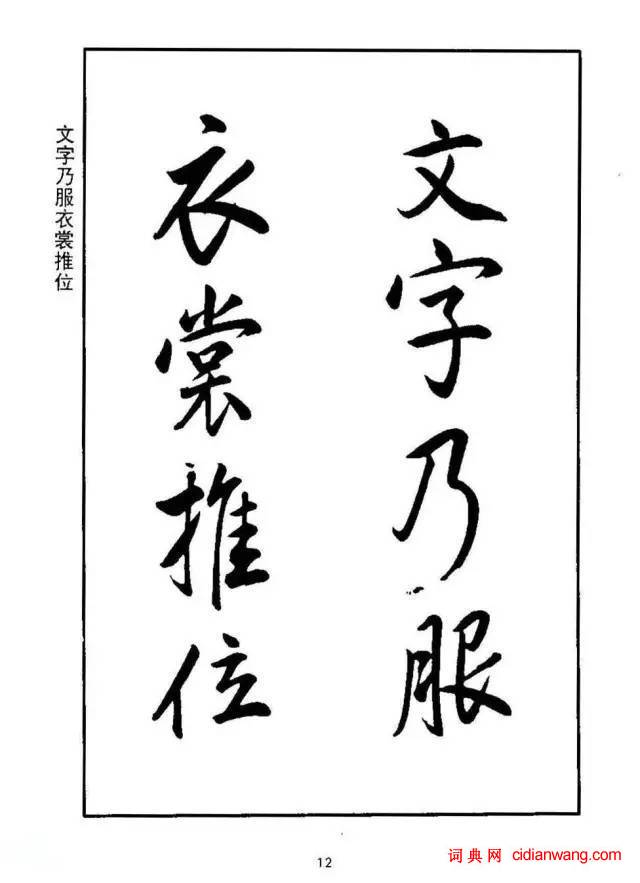 文字乃服
衣裳推位
文字乃服衣裳推位
12
词典网 cidianwang.com